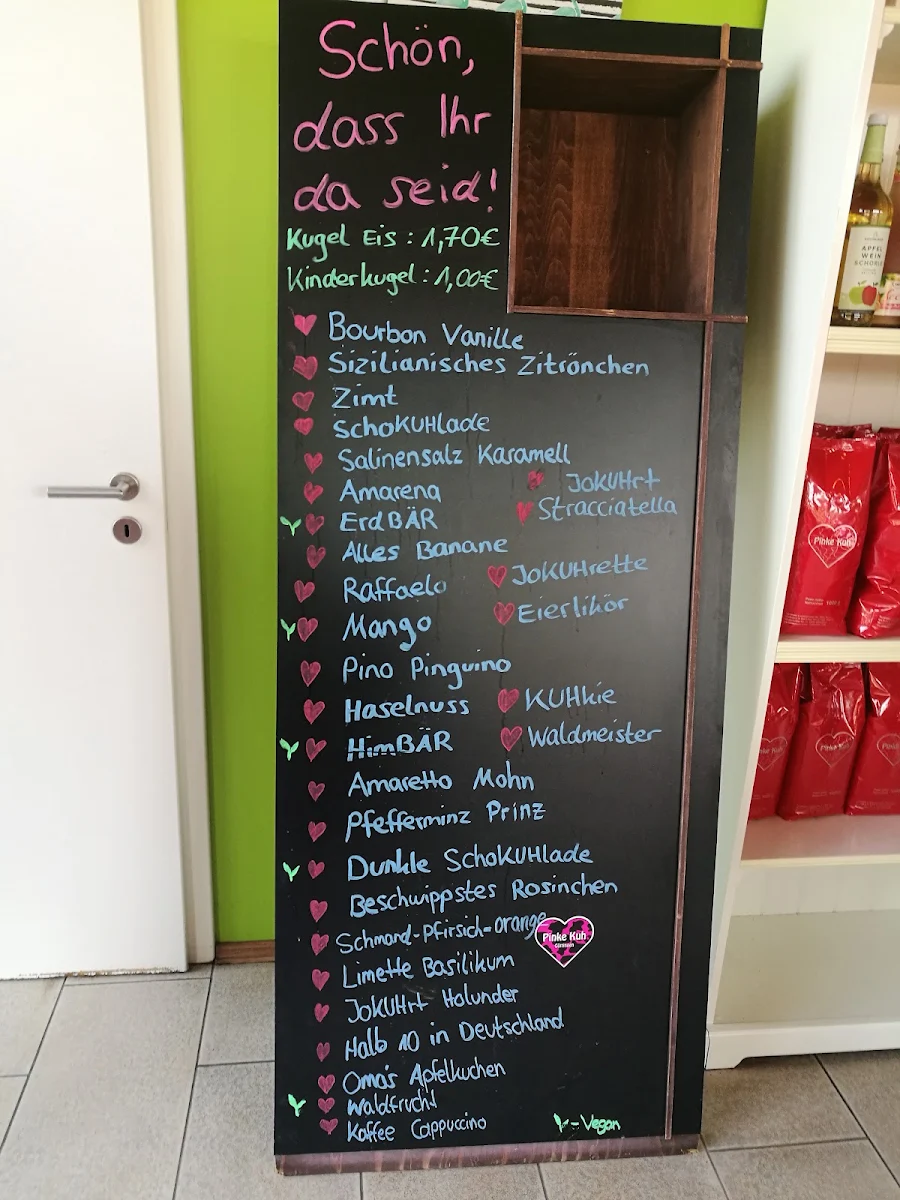 Schön,
dass Ihr
da seid!
Kugel Eis : 1,70€
Kinderkugel : 1,00€
Bourbon Vanille
Sizilianisches Zitrönchen
Zimt
SchoKUHlade
Salinensalz Karamell
Amarena
ErdBÄR
Alles Banane
Raffaelo
Mango
Pino Pinguino
Haselnuss
HimBÄR
Amaretto Mohn
Pfefferminz Prinz
Dunkle SchoKUHlade
Beschwippstes Rosinchen
Schmand-Pfirsich-Orange
Limette Basilikum
JoKUHrt Holunder
Halb 10 in Deutschland
Oma's Apfelkuchen
Waldfrucht
Kaffee Cappuccino
JoKUHrt
Stracciatella
JoKUHrette
Eierlikör
KUHkie
Waldmeister
Pinke Kuh
- Vegan
APFEL
WEIN
SCHORLE
Pinke Kuh
Pinke Kuh